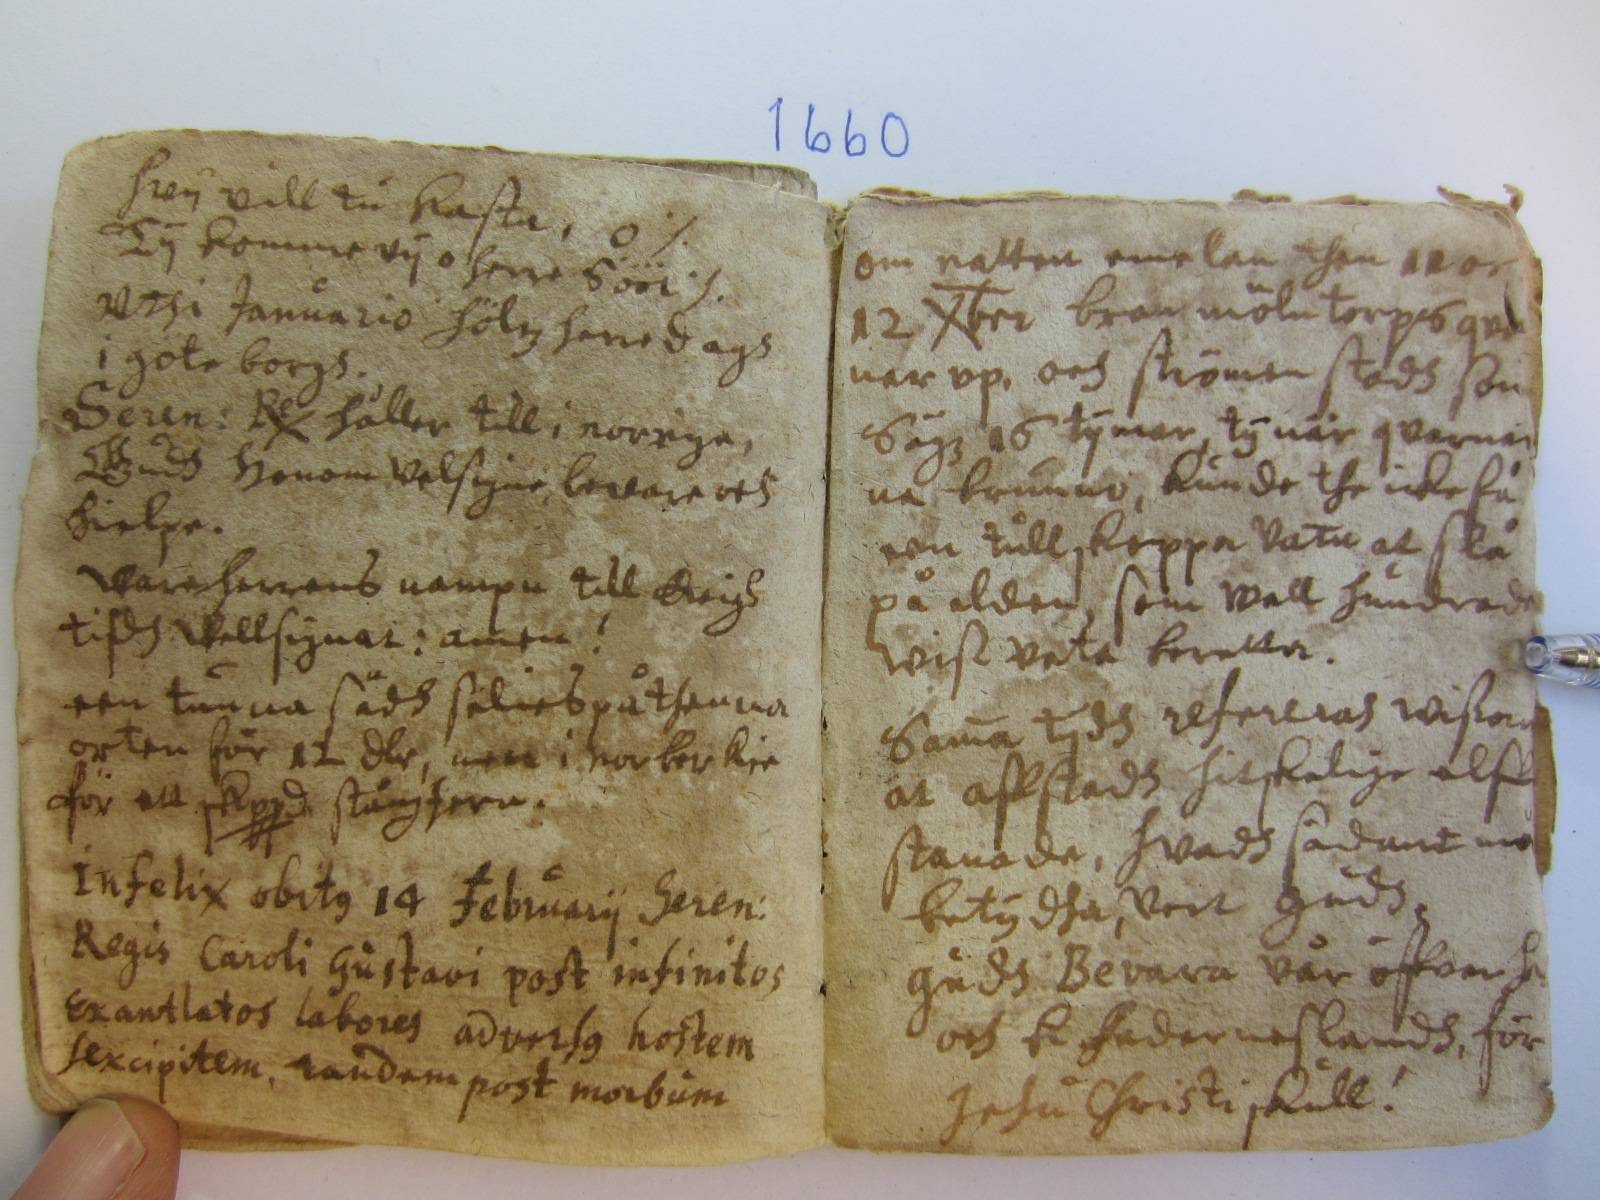 1660
hwij vill tu kasta, o /.
Tÿ komme vÿ o herre Sööt /.
Uthi Januario höltz herredagh
i göteborgh.
Seren: Rex håller till i norrige,
Gudh honom velsigne, bevare och
hielpe.
Ware herrens nampn till
tijdh wellsignat: amen!
een tunna sädh sålies på thenna
orten för 12 dlr, men i norberkie
för ett skppd stångjern.
Infelix obitus 14 Februarij Seren:
Regis Caroli Gustavi post infinitos
exantlatos labores adversus hostem
sexcipitem, tandem post morbum
om natten emelan then 11 oc
12 Xber bran mölntorps qvar
nar vp, och strömen stodh son
Sägz 16 tÿmar, tÿ när qvarnar
na brunno, kunde the icke få
een full skeppa vatn at slå
på elden, som wall hundrade
wist veta beretta.
Sama tÿdh refereras wisom
at affstadh hitskelige elff
stanade, hvadh sådant mo
betÿdha, vett Gudh.
gudh Bevara vår öffver he
och k. fäderneslandh, för
Jesu Christi skull!